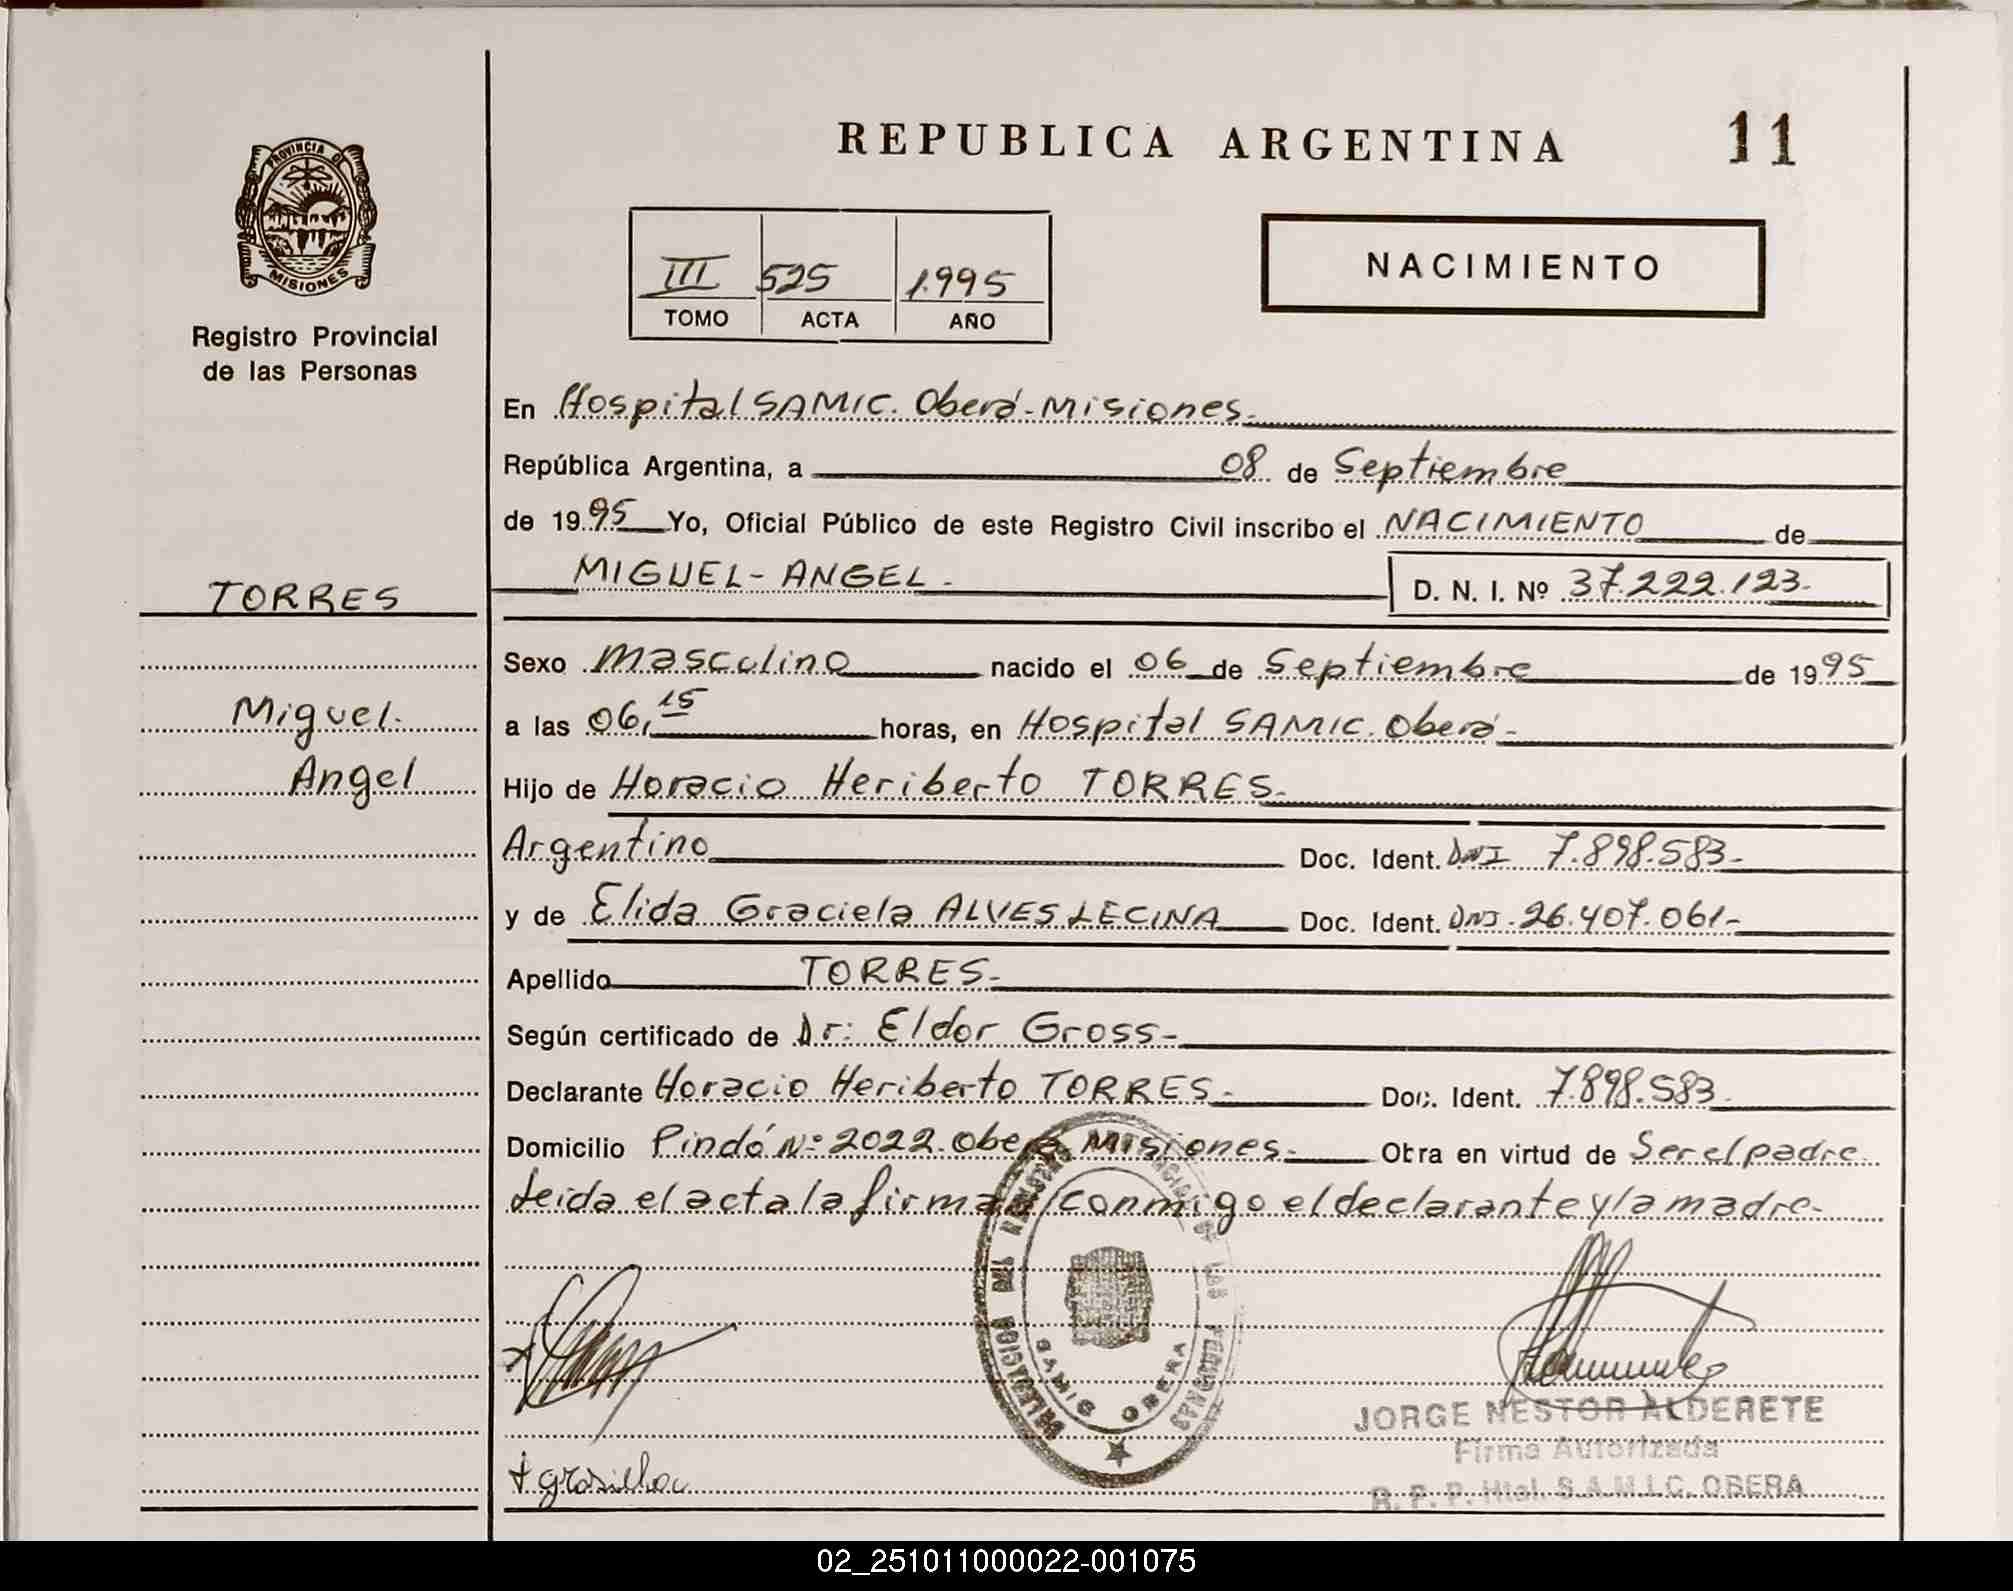 REPUBLICA ARGENTINA
11
PROVINCIA DE
MISIONES
Registro Provincial
de las Personas
III 525 1995
TOMO ACTA AÑO
NACIMIENTO
En Hospital SAMIC. Oberá-Misiones-
República Argentina, a 08 de Septiembre
de 1995 Yo, Oficial Público de este Registro Civil inscribo el NACIMIENTO de
MIGUEL-ANGEL- D. N. I. Nº 37.222.123-
TORRES
Miguel-
Angel
Sexo Masculino nacido el 06 de Septiembre de 1995
a las 06,15 horas, en Hospital SAMIC. Oberá-
Hijo de Horacio Heriberto TORRES-
Argentino Doc. Ident. DNI 7.898.583-
y de Elida Graciela ALVES LECINA Doc. Ident. DNI-26.407.061-
Apellido TORRES-
Según certificado de Dr: Eldor Gross-
Declarante Horacio Heriberto TORRES- Doc. Ident. 7.898.583-
Domicilio Pindó Nº 2022-Oberá Misiones- Obra en virtud de Ser el padre
Leida el acta la firman conmigo el declarante y la madre-
DE LAS PERSONAS
SAMIC OBERA
JORGE NESTOR ALDERETE
Firma Autorizada
R. P. P. Htal. S.A.M.I.C. OBERA
02_251011000022-001075